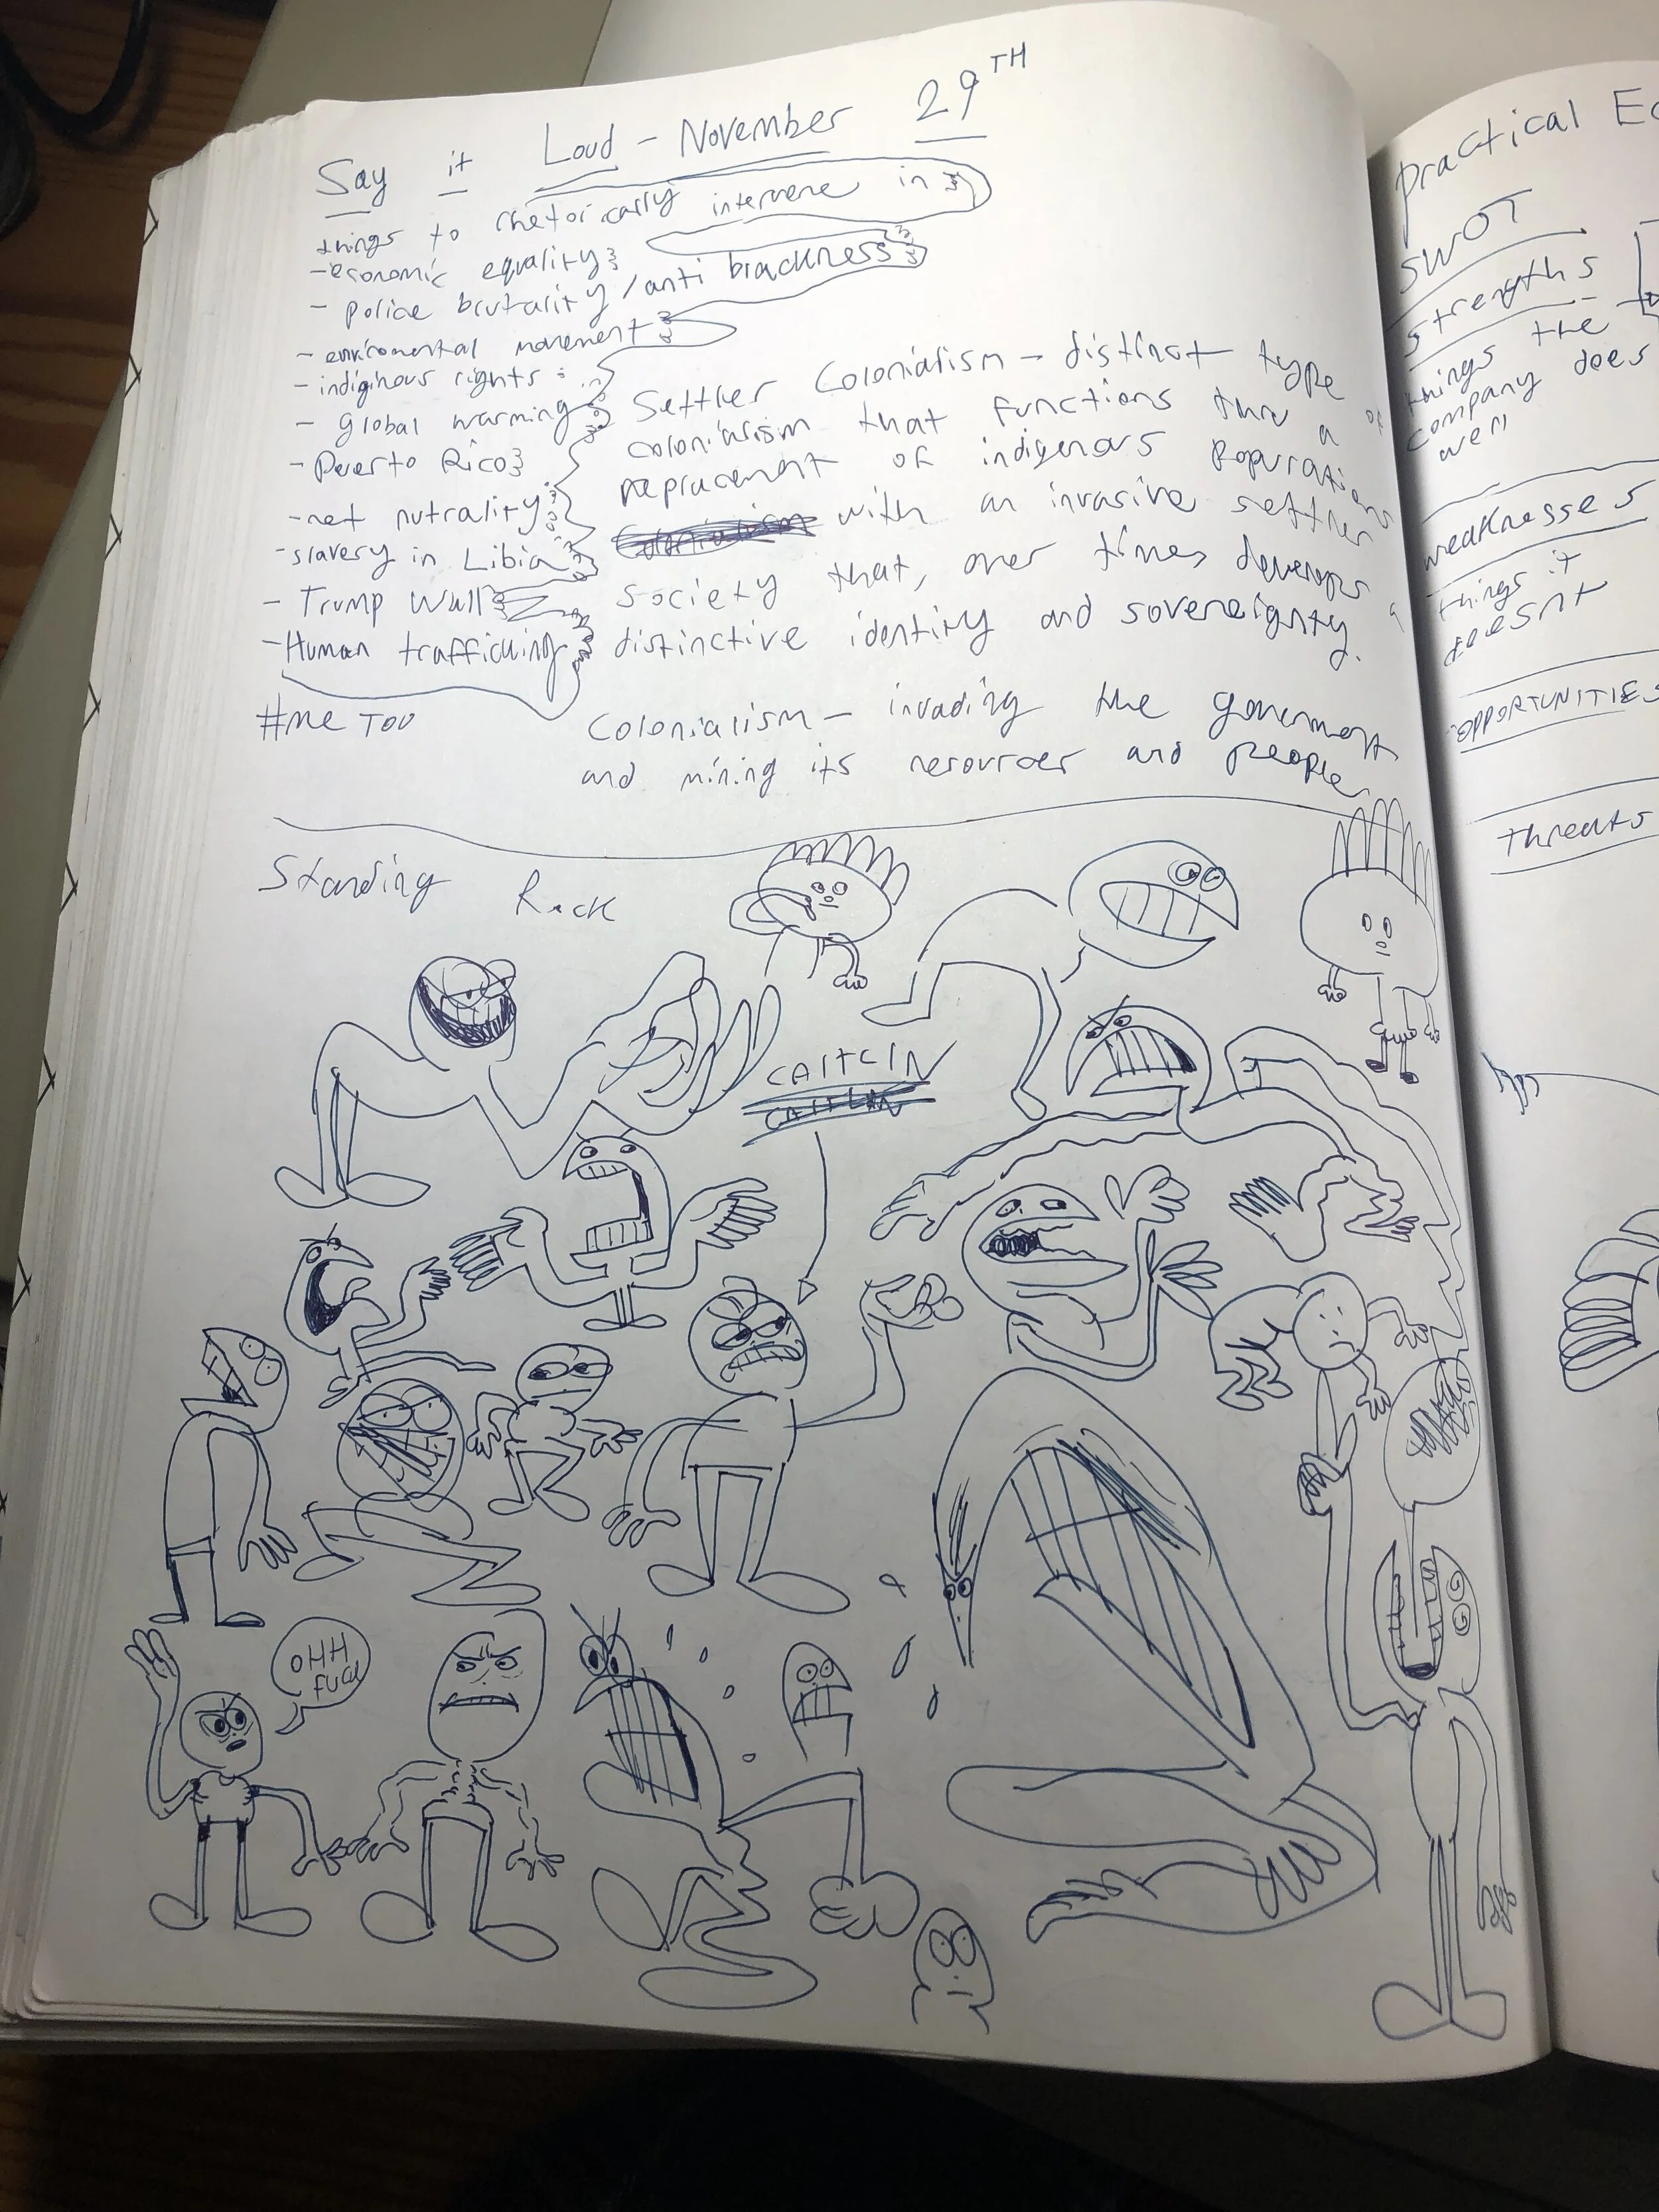 Say it Loud - November 29TH
things to rhetorically intervene in
-economic equality
- police brutality / anti blackness
- enviromental movement
- indiginous rights
- Global warming
- Puerto Rico
-net nutrality
-slavery in Libia
- Trump Wall
-Human trafficking
#me TOO
Settler Colonialism - distinct type of
colonialism that functions thru a
replacement of indigenous populations
with an invasive settler
society that, over times, develops a
distinctive identity and sovereignty.
Colonialism - invading the government
and mining its resources and people
Standing Rock
CAITLIN
CAITLIN
OHH
FUCK
practical Ec
SWOT
Strengths
things the
company does
well
weaknesses
things it
doesnt
OPPORTUNITIES
threats